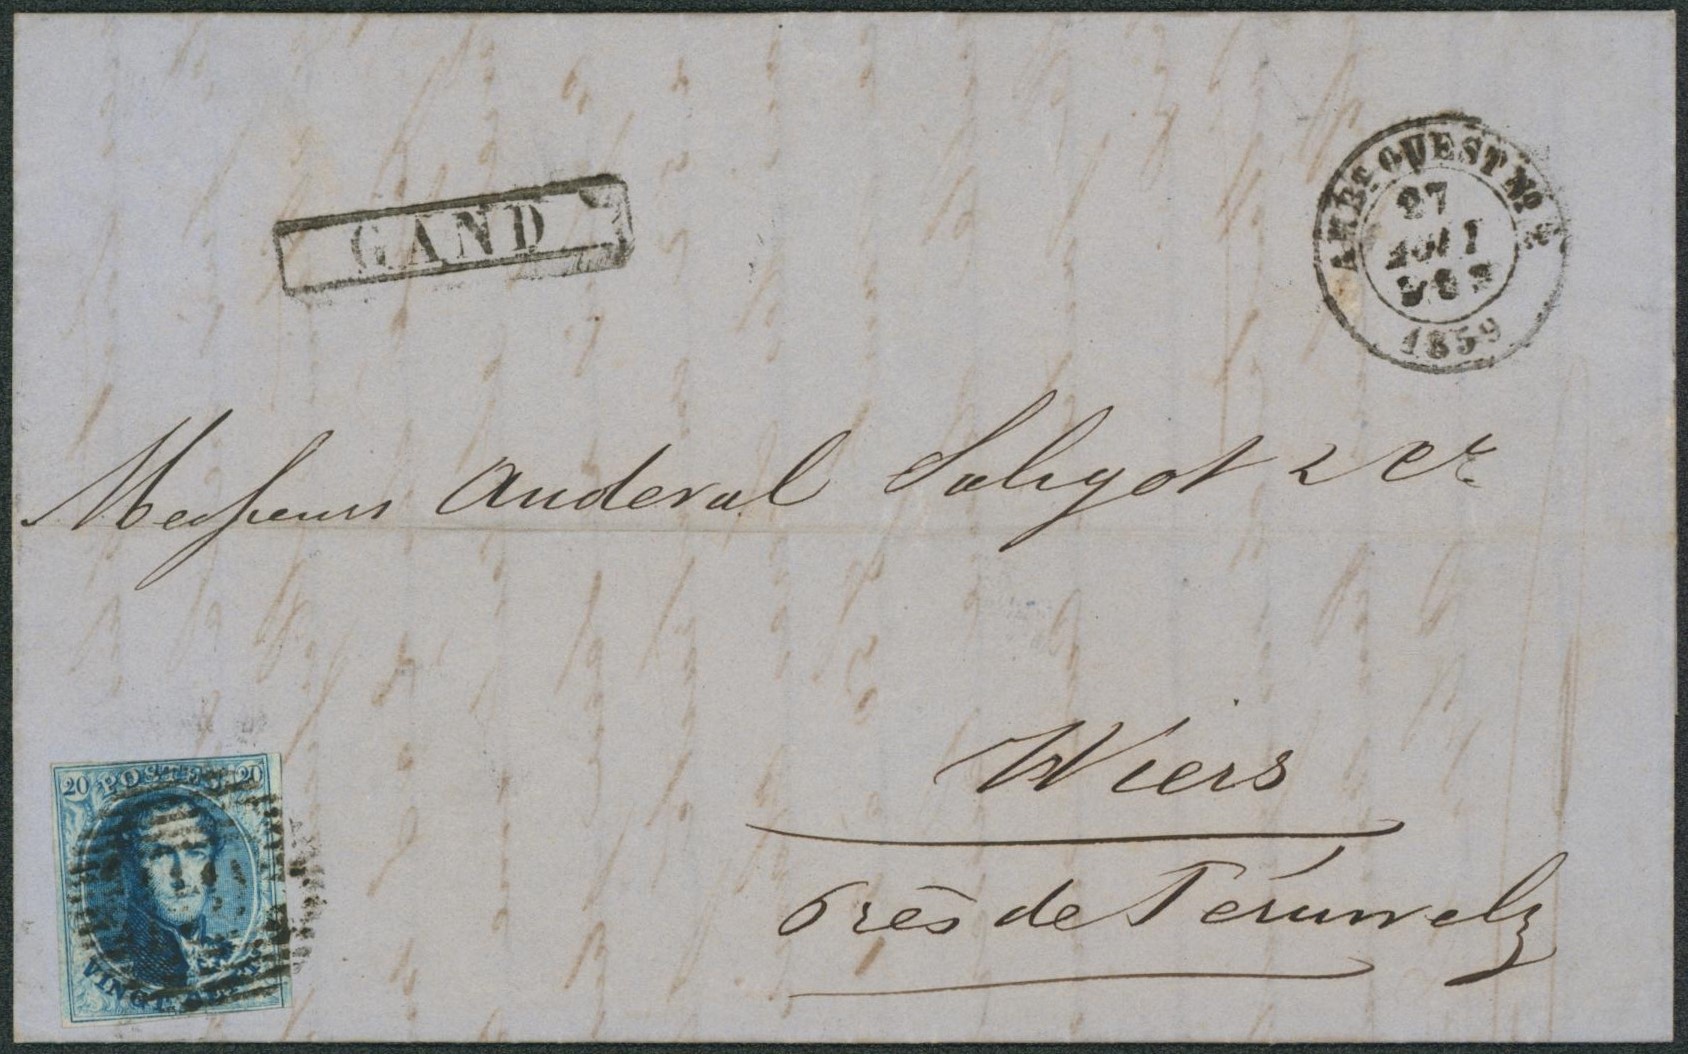 GAND
AMBt. OUEST No
27
1859
Messieurs Anderval Saligot & Cie
Wiers
Près de Péruwelz
20 POSTES 20
VINGT CENTS